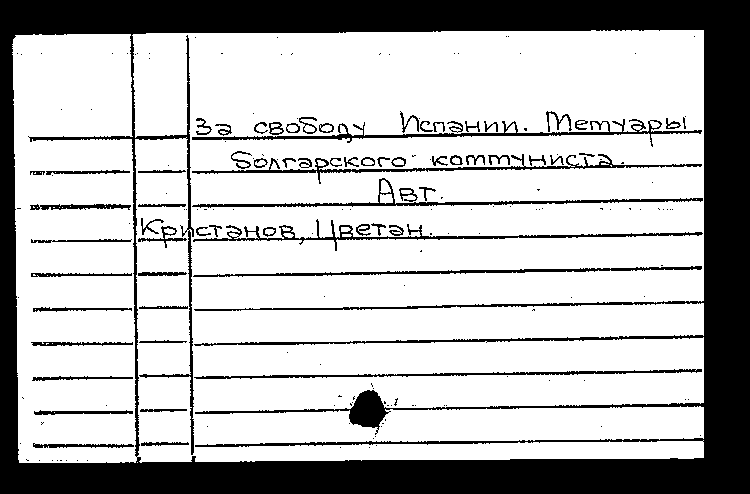 За свободу Испании. Мемуары
болгарского коммуниста.
Авт.
Кристанов, Цветан.